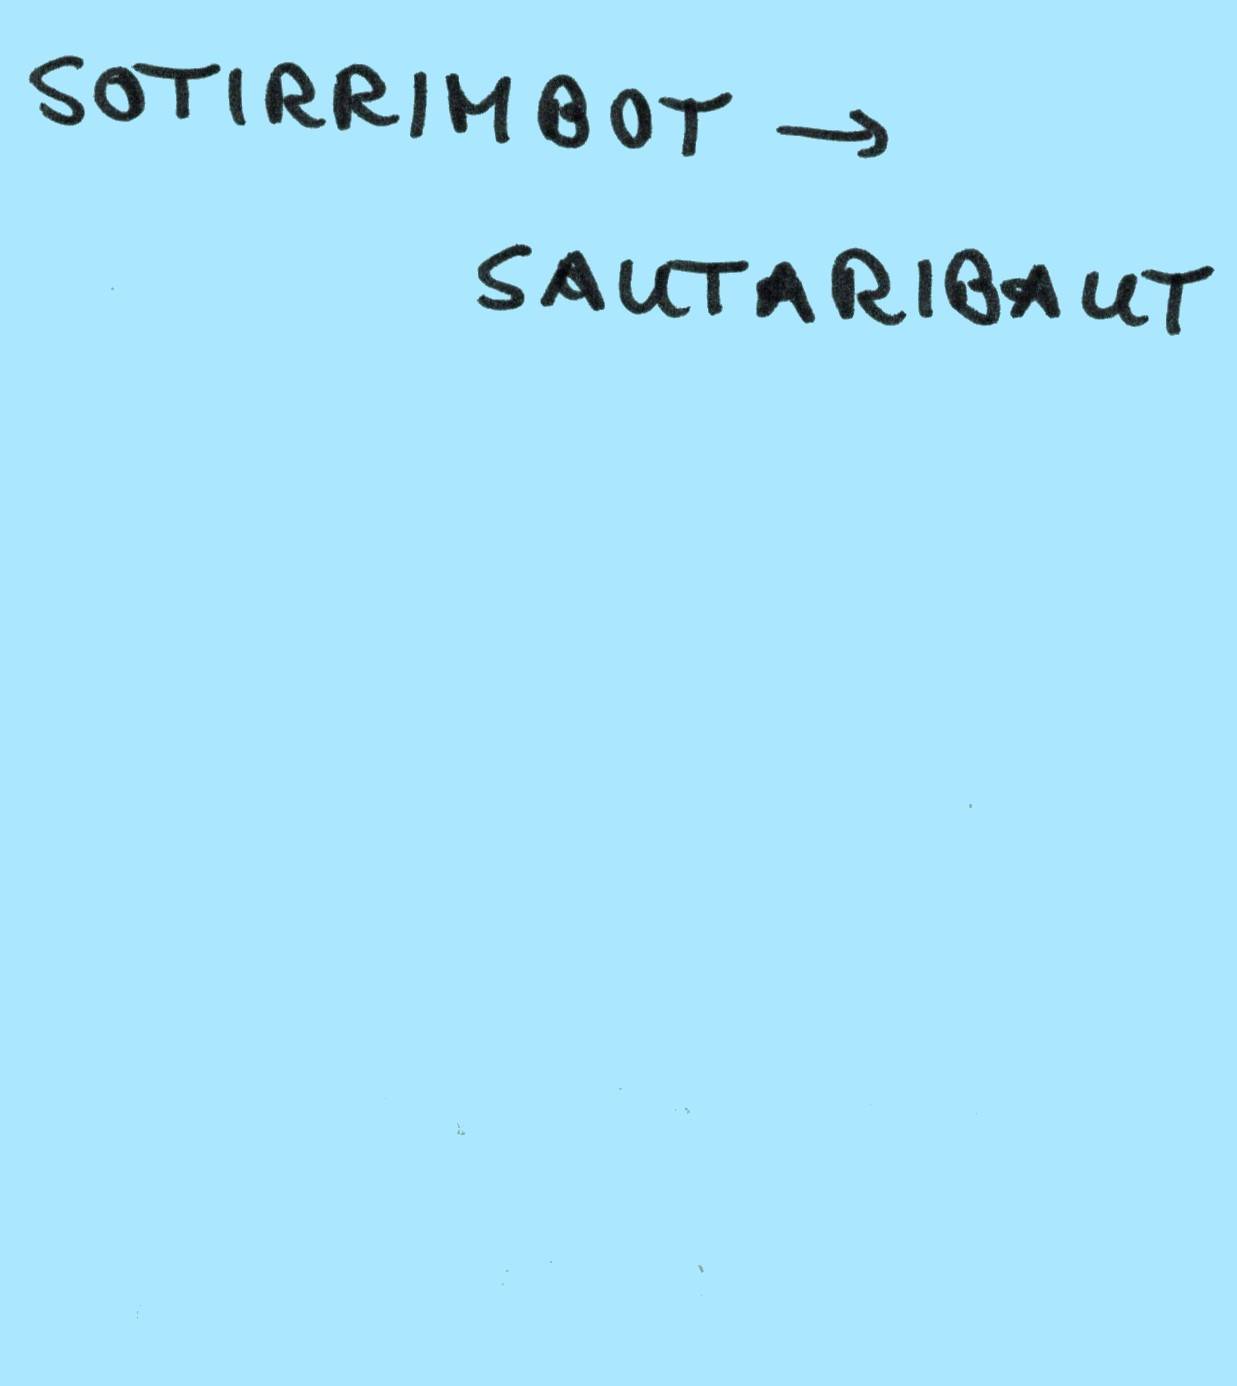 SOTIRRIMBOT →
SAUTARIBAUT